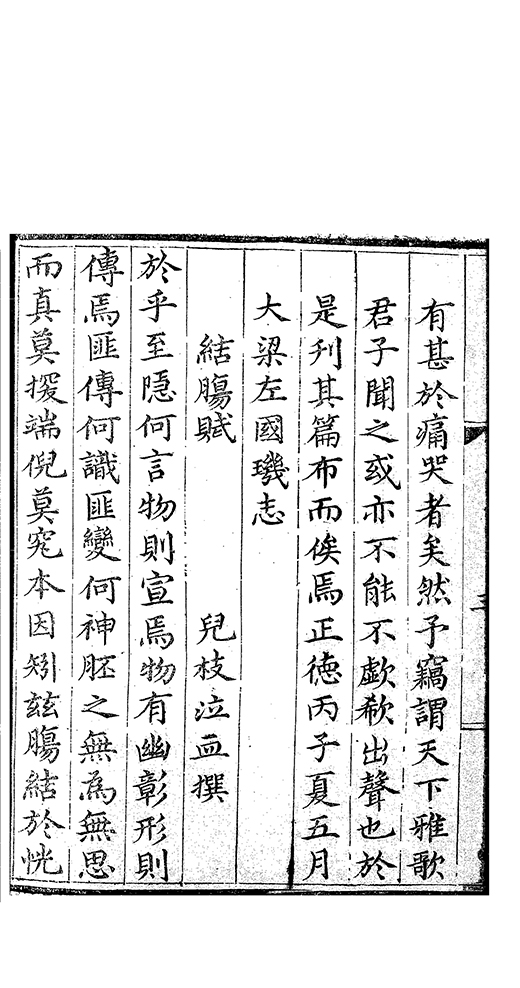 有甚於痛哭者矣然予竊謂天下雅歌
君子聞之或亦不能不歔欷出聲也於
是刋其篇布而俟焉正德丙子夏五月
大梁左國璣志
結腸賦 兒枝泣血撰
於乎至隱何言物則宣焉物有幽彰形則
傳焉匪傳何識匪變何神胚之無為無思
而真莫援端倪莫究本因矧茲腸結於恍